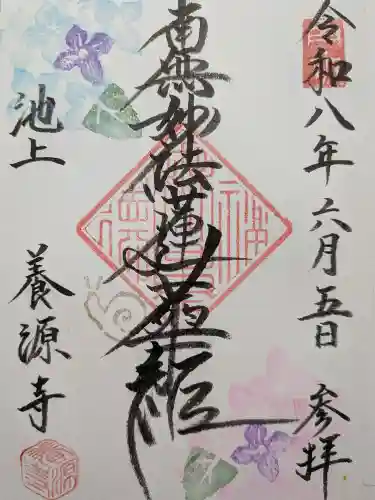 令和八年六月五日
参拝
南無妙法蓮華経
池上
養源寺